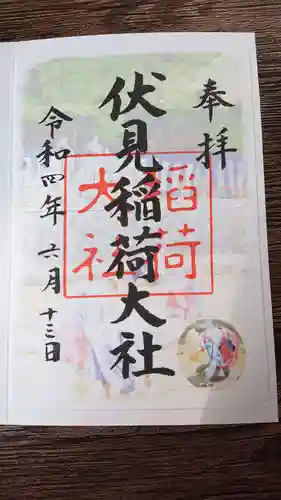 奉拝
伏見稲荷大社
稲荷
大社
令和四年 六月 十三日